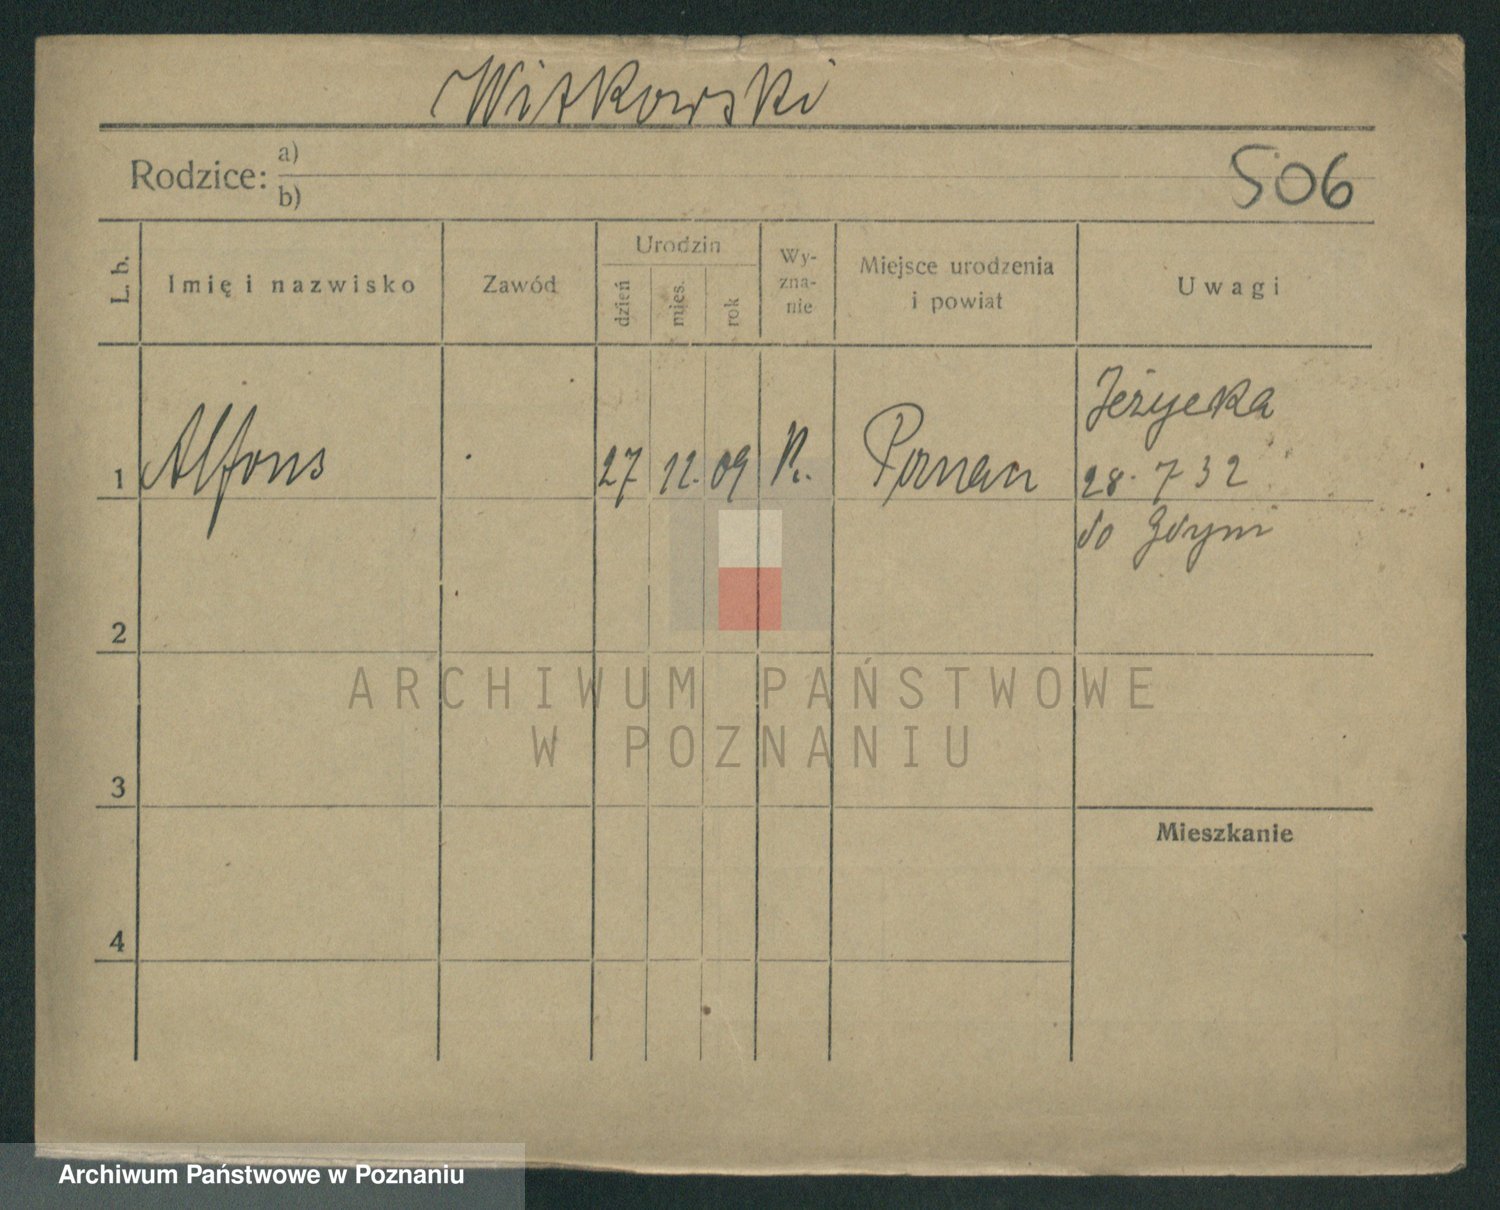 Witkowski
Rodzice: a)
b)
506
L. b.
Imię i nazwisko
Zawód
Urodzin
dzień
mies.
rok
Wy-
zna-
nie
Miejsce urodzenia
i powiat
Uwagi
1 Alfons 27 12. 09 Poznań
Jeżycka
28. 7 32
do Gdyni
2
3
Mieszkanie
4
ARCHIWUM PAŃSTWOWE
W POZNANIU
Archiwum Państwowe w Poznaniu